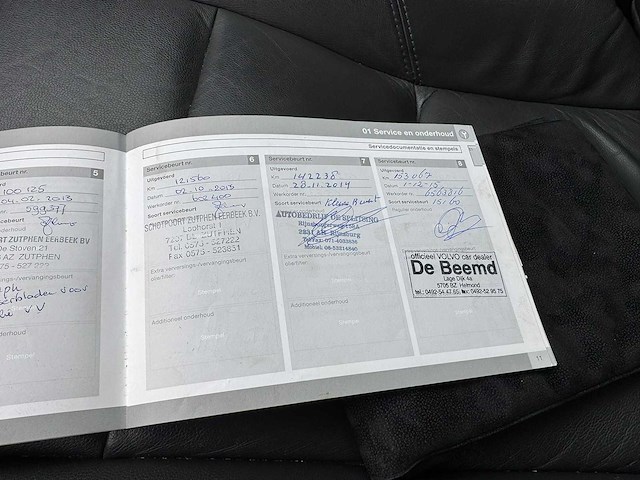 01 Service en onderhoud
Servicedocumentatie en stempels
5
100 125
04.02.2013
599577
RT ZUTPHEN EERBEEK BV
De Stoven 21
AZ ZUTPHEN
75 - 527 222
extra verversings-/vervangingsbeurt
Servicebeurt nr. 6
Uitgevoerd
Km 121560
Datum 02.10.2013
Werkorder nr. 602400
Soort servicebeurt
SCHOTPOORT ZUTPHEN EERBEEK B.V.
Loohorst 1
ZUTPHEN
Tel. 0575-527222
Fax 0575-523831
Extra verversings-/vervangingsbeurt
olie/filter:
Stempel
Additioneel onderhoud
Stempel
Servicebeurt nr. 7
Uitgevoerd
Km 142238
Datum 28.11.2014
Werkorder nr.
Soort servicebeurt Kleine Beurt
AUTOBEDRIJF DE SPLITSING
Rijnsburgerweg
2231 Rijnsburg
Tel/Fax: 071-4033636
Mobiel 06-53214840
Extra verversings-/vervangingsbeurt
olie/filter:
Stempel
Additioneel onderhoud
Stempel
Servicebeurt nr. 8
Uitgevoerd
Km 153067
Datum 1-12-15
Werkorder nr.
Soort servicebeurt 15160
Regulier onderhoud
officieel VOLVO car dealer
De Beemd
Lage Dijk 4a
5705 BZ Helmond
tel.: 0492-54.47.55, fax: 0492-52 95 75
Additioneel onderhoud
Stempel
11